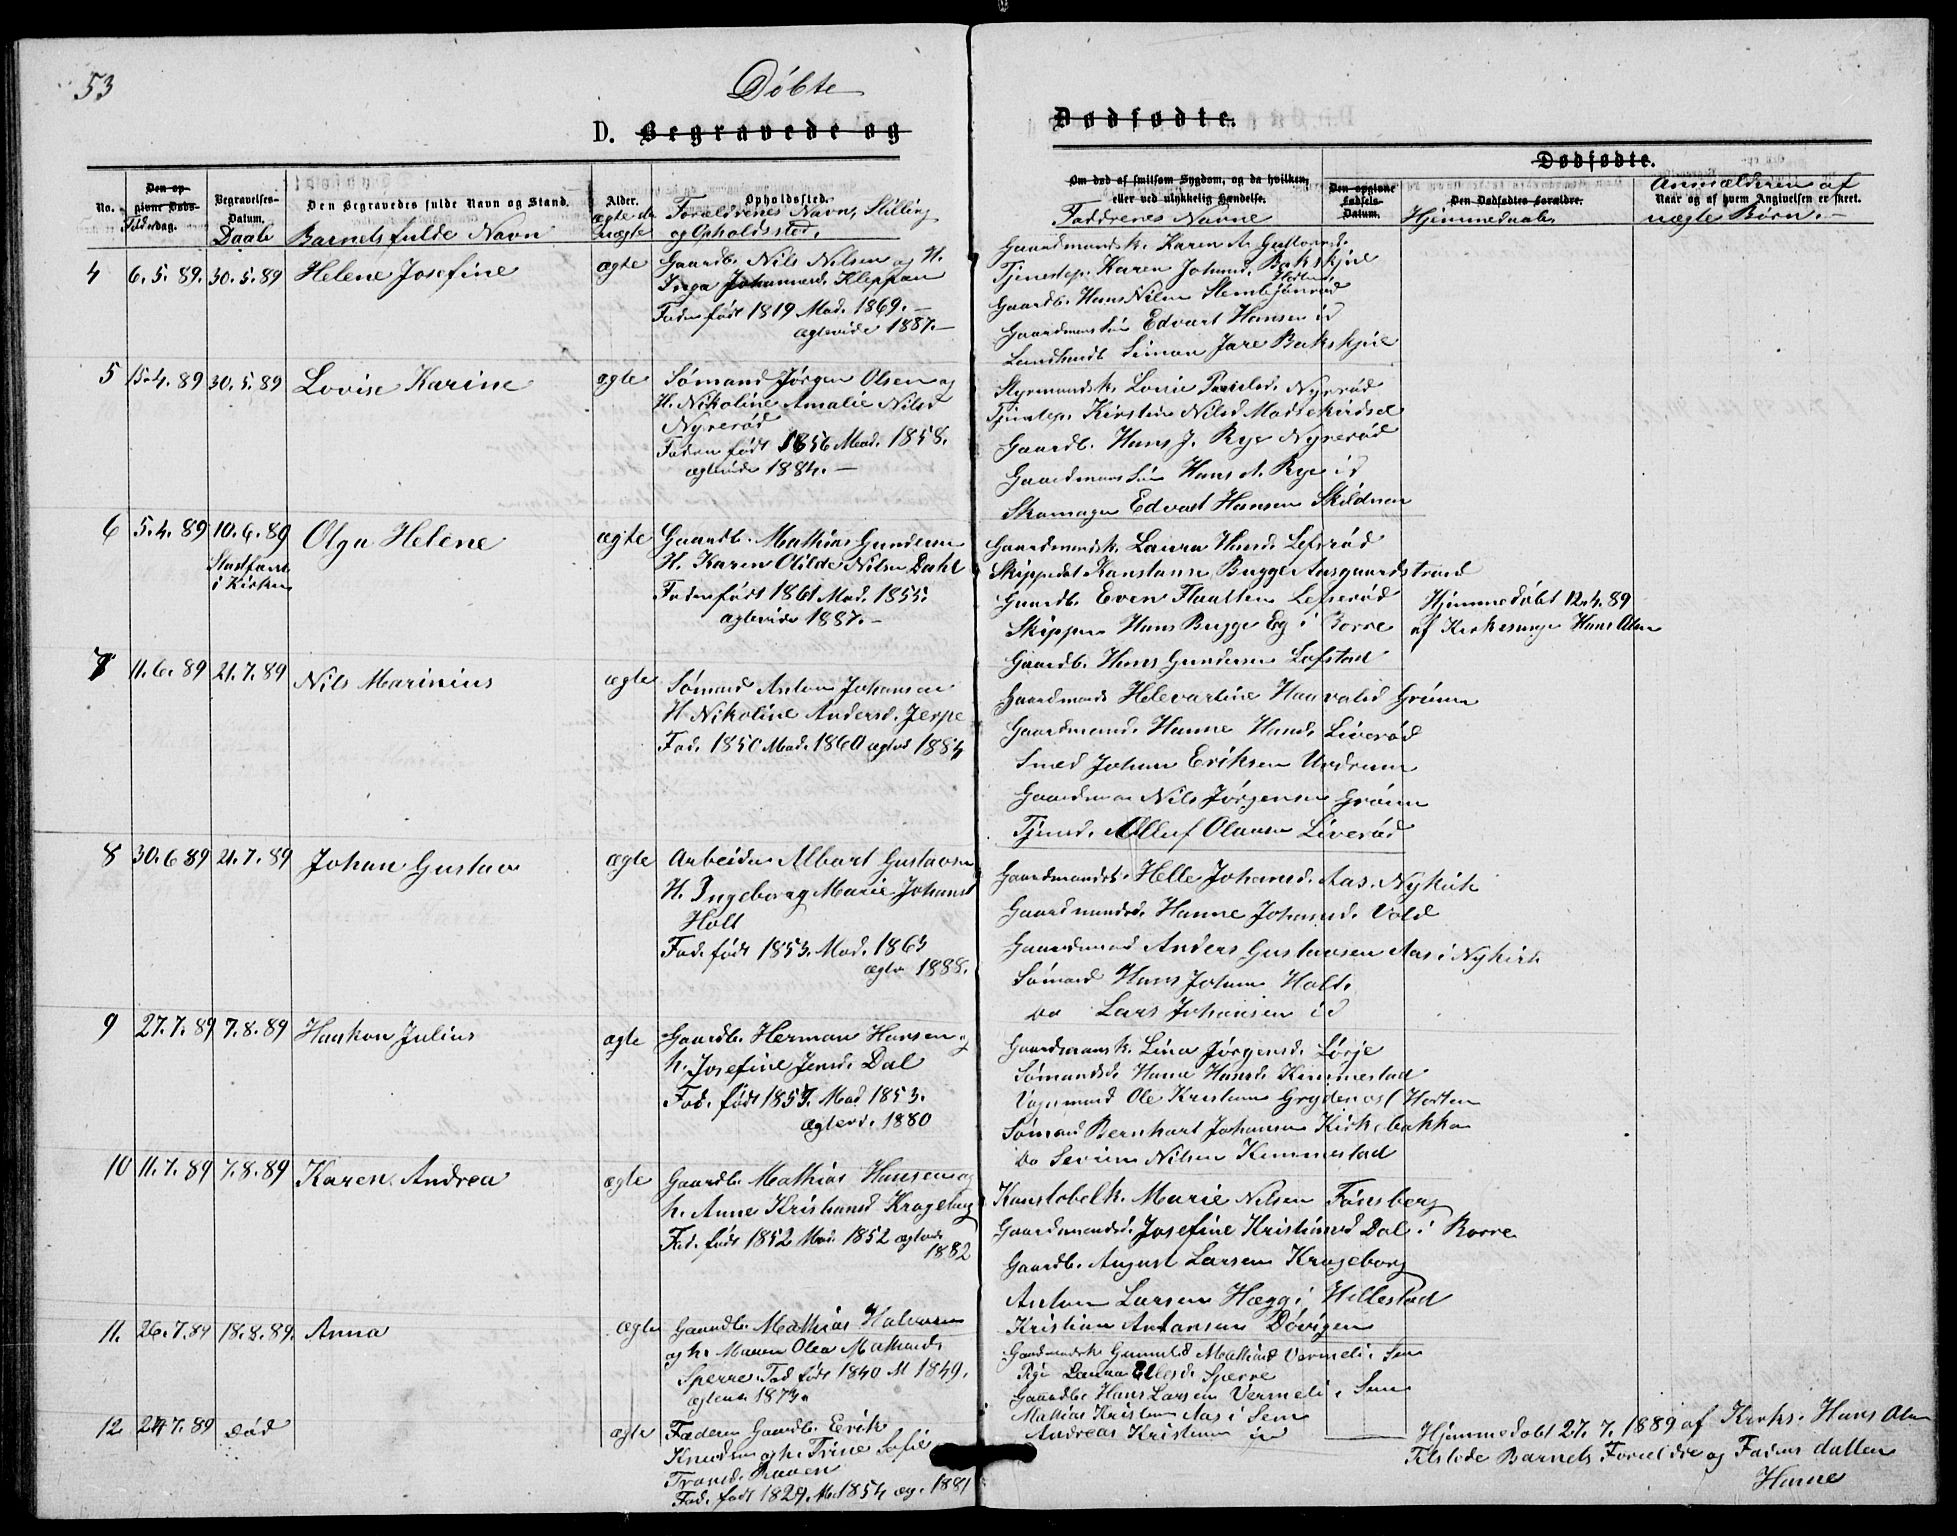 53
Døbte
D. Begravede og
Dødfødte.
No.
Den opgivne Dødsdag.
Begravelses-Datum.
Daab
Den Begravedes fulde Navn og Stand.
Barnets fulde Navn
Alder.
ægte el.
uægte
Opholdssted.
Forældrenes Navn, Stilling
og Opholdssted.
Om død af smitsom Sygdom, og da hvilken,
eller ved ulykkelig Hændelse.
Faddrenes Navne
Dødfødte.
Den opgivne Fødsels-Datum.
Den Dødfødtes Forældre.
Hjemmedaab
Anmælderen af
Naar og af hvem Angivelsen er sket.
uægte Børn.-
4 6.5.89. 30.5.89 Helene Josefine ægte
Gaardb. Nils Nilsen og H.
Inga Johannesd. Kleppan
Faderen født 1819 Mod. 1869.-
ægtevide 1887.-
Gaardmandsk. Karen A. Gustavsd.
Tjenestep. Karen Johansd. Bakskjæl
Gaardb. Hans Nilsen
Horten
Gaardmans Søn Edvart Hansen id
Simon Jare Bakskjæl
5 15.4.89 30.5.89 Lovise Karine ægte
Sømand Jørgen Olsen og
H. Nikoline Amalie Nilsd
Nyrerød
Faderen født 1856 Mod. 1858.
ægtevide 1884.-
Styrmandsk. Lovise Nyrerød
Tjenestep. Kirstine Nilsd
Gaardb. Hans J. Rye Nyrerød
Gaardmans Søn Hans A. Rye id
Skomager Edvart Hansen
6 5.4.89 10.6.89 Olga Helene ægte
Stadfæst.
i Kirken
Gaardb. Mathias Gundersen
H. Karen Olilde Nilsen Dahl
Faderen født 1861 Mod. 1855.
ægtevide 1887.-
Gaardmandsk. Laura Hansd. Lefsrød
Skipperdat Konstanse Bugge Aasgaardstrand
Gaardb. Even Flaatten Lefserød
Skipper Hans Bugge Eg i Borre
Gaardb. Hans Gundersen Lofstad
Hjemmedøbt 12.4.89
af Kirkesanger Hans Olsen
7 11.6.89 21.7.89 Nils Marinius ægte
Sømand Anton Johansen
H Nikoline Andersd. Jerpe
Fad. 1850 Mod. 1860 ægtvd 1884
Gaardmands Helevartine Haavalsd Grønn
Gaardmand. Hanne Hansd. Liverød
Smed Johan Eriksen Undrum
Gaardman Nils Jørgensen Grønn
Tjened. Olluf Olausen Liverød
8 30.6 89 21.7.89 Johan Gustav ægte
Arbeider Albert Gustavsen
H. Ingeborg Marie Johansd
Holt
Fad. født 1853. Mod. 1863
ægtv 1888.
Gaardmandsk. Helle Johansd. Aas. Nykirk
Gaardmandsd. Hanne Johansd. Vold
Gaardmand Anders Gustavsen Aas i Nykirk
Sømand Hans Johan Holt.
Do Lars Johansen id
9 27.7.89 7.8.89 Haakon Julius ægte
Gaardb. Herman Hansen og
h. Josefine Jensd. Dal
Fad. født 1857. Mod 1853.
ægtevd. 1880
Gaardmansk. Lina Jørgensd. Sørje
Sømandsd. Hanne Hansd. Kimmestad
Vognmand Ole Kristian Grydenos( Horten
Sømand Bernhart Johansen Kirkebakken
Do Severin Nilsen Kimmestad
10 11.7.89 7.8.89 Karen Andrea ægte
Gaardb. Mathias Hansen og
h. Anne Kristiansd Krageborg
Fad. født 1852 Mod. 1852 ægtevd
1882
Konstobelk. Marie Nilsen Tønsberg
Gaardmandsd. Josefine Kristiansd Dal i Borre
Gaardb. August Larsen Krageborg
Anton Larsen Hæggi Hillestad
Kristian Antonsen Døvigen
11. 26.7.89 18.8.89. Anna ægte
Gaardb. Mathias Halvorsen
og h. Maren Olea Mathiasd.
Sperre. Fad født 1840 M 1849.
ægtevd. 1873.
Gaardmandsk Gunnild Mathiasd Vermeli i Sem
Pige Laura Ellesd. Sperre
Gaardb. Hans Larsen Vermeli i Sem
Mathias Kristian Aas i Sem
Andreas Kristian id
12 24 7.89 Død ægte
Faderen Gaardb. Erik
Knudsen og h. Trine Sofie
Traned. Raaen
Fad. født 1829. Md 1854 æg. 1881
Hjemmedøbt 27.7.1889 af Kirks. Hans Olsen
Tilstede Barnets Forældre og Faders datter
Hanne